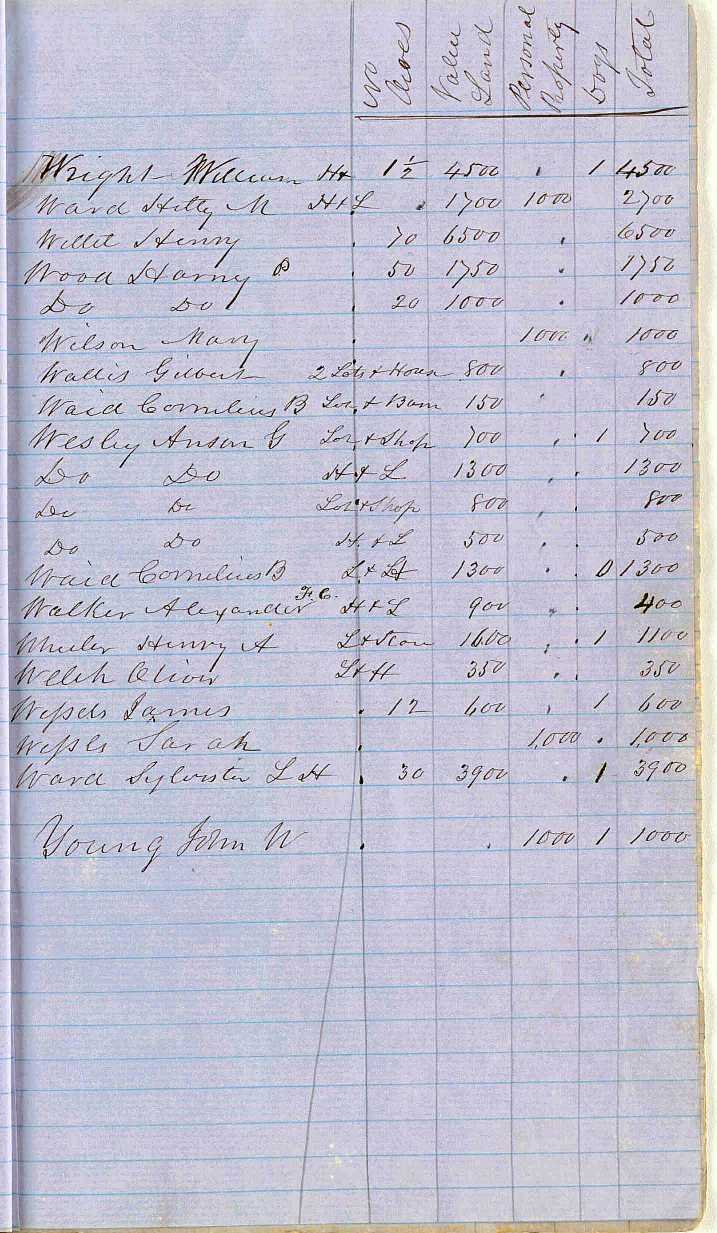 No Acres Value Land Personal Property Dogs Total
Wright William H+ 1½ 4500 . 1 4500
Ward Hetty M H+L . 1700 1000 2700
Willet Henry . 70 6500 . 6500
Wood Harvey B . 50 1750 . 1750
Do Do . 20 1000 . 1000
Wilson Mary . 1000 . 1000
Wallis Gilbert 2 Lots + House 800 . 800
Waid Cornelius B Lot + Barn 150 . 150
Wesley Anson G Lot + Shop 700 . 1 700
Do Do H + L 1300 . . 1300
Do Do Lot + Shop 800 . . 800
Do Do H. + L 500 . . 500
Waid Cornelius B L + 1300 . 0 1300
Walker Alexander F. C. H + L 900 . . 400
Wheeler Henry A L + Store 1600 . . 1 1100
Welch Oliver L + H 350 . . 350
Wessels James . 12 600 . 1 600
Wessls Sarah . 1,000 . 1,000
Ward Sylvester L H . 30 3900 . 1 3900
Young John W . . 1000 1 1000